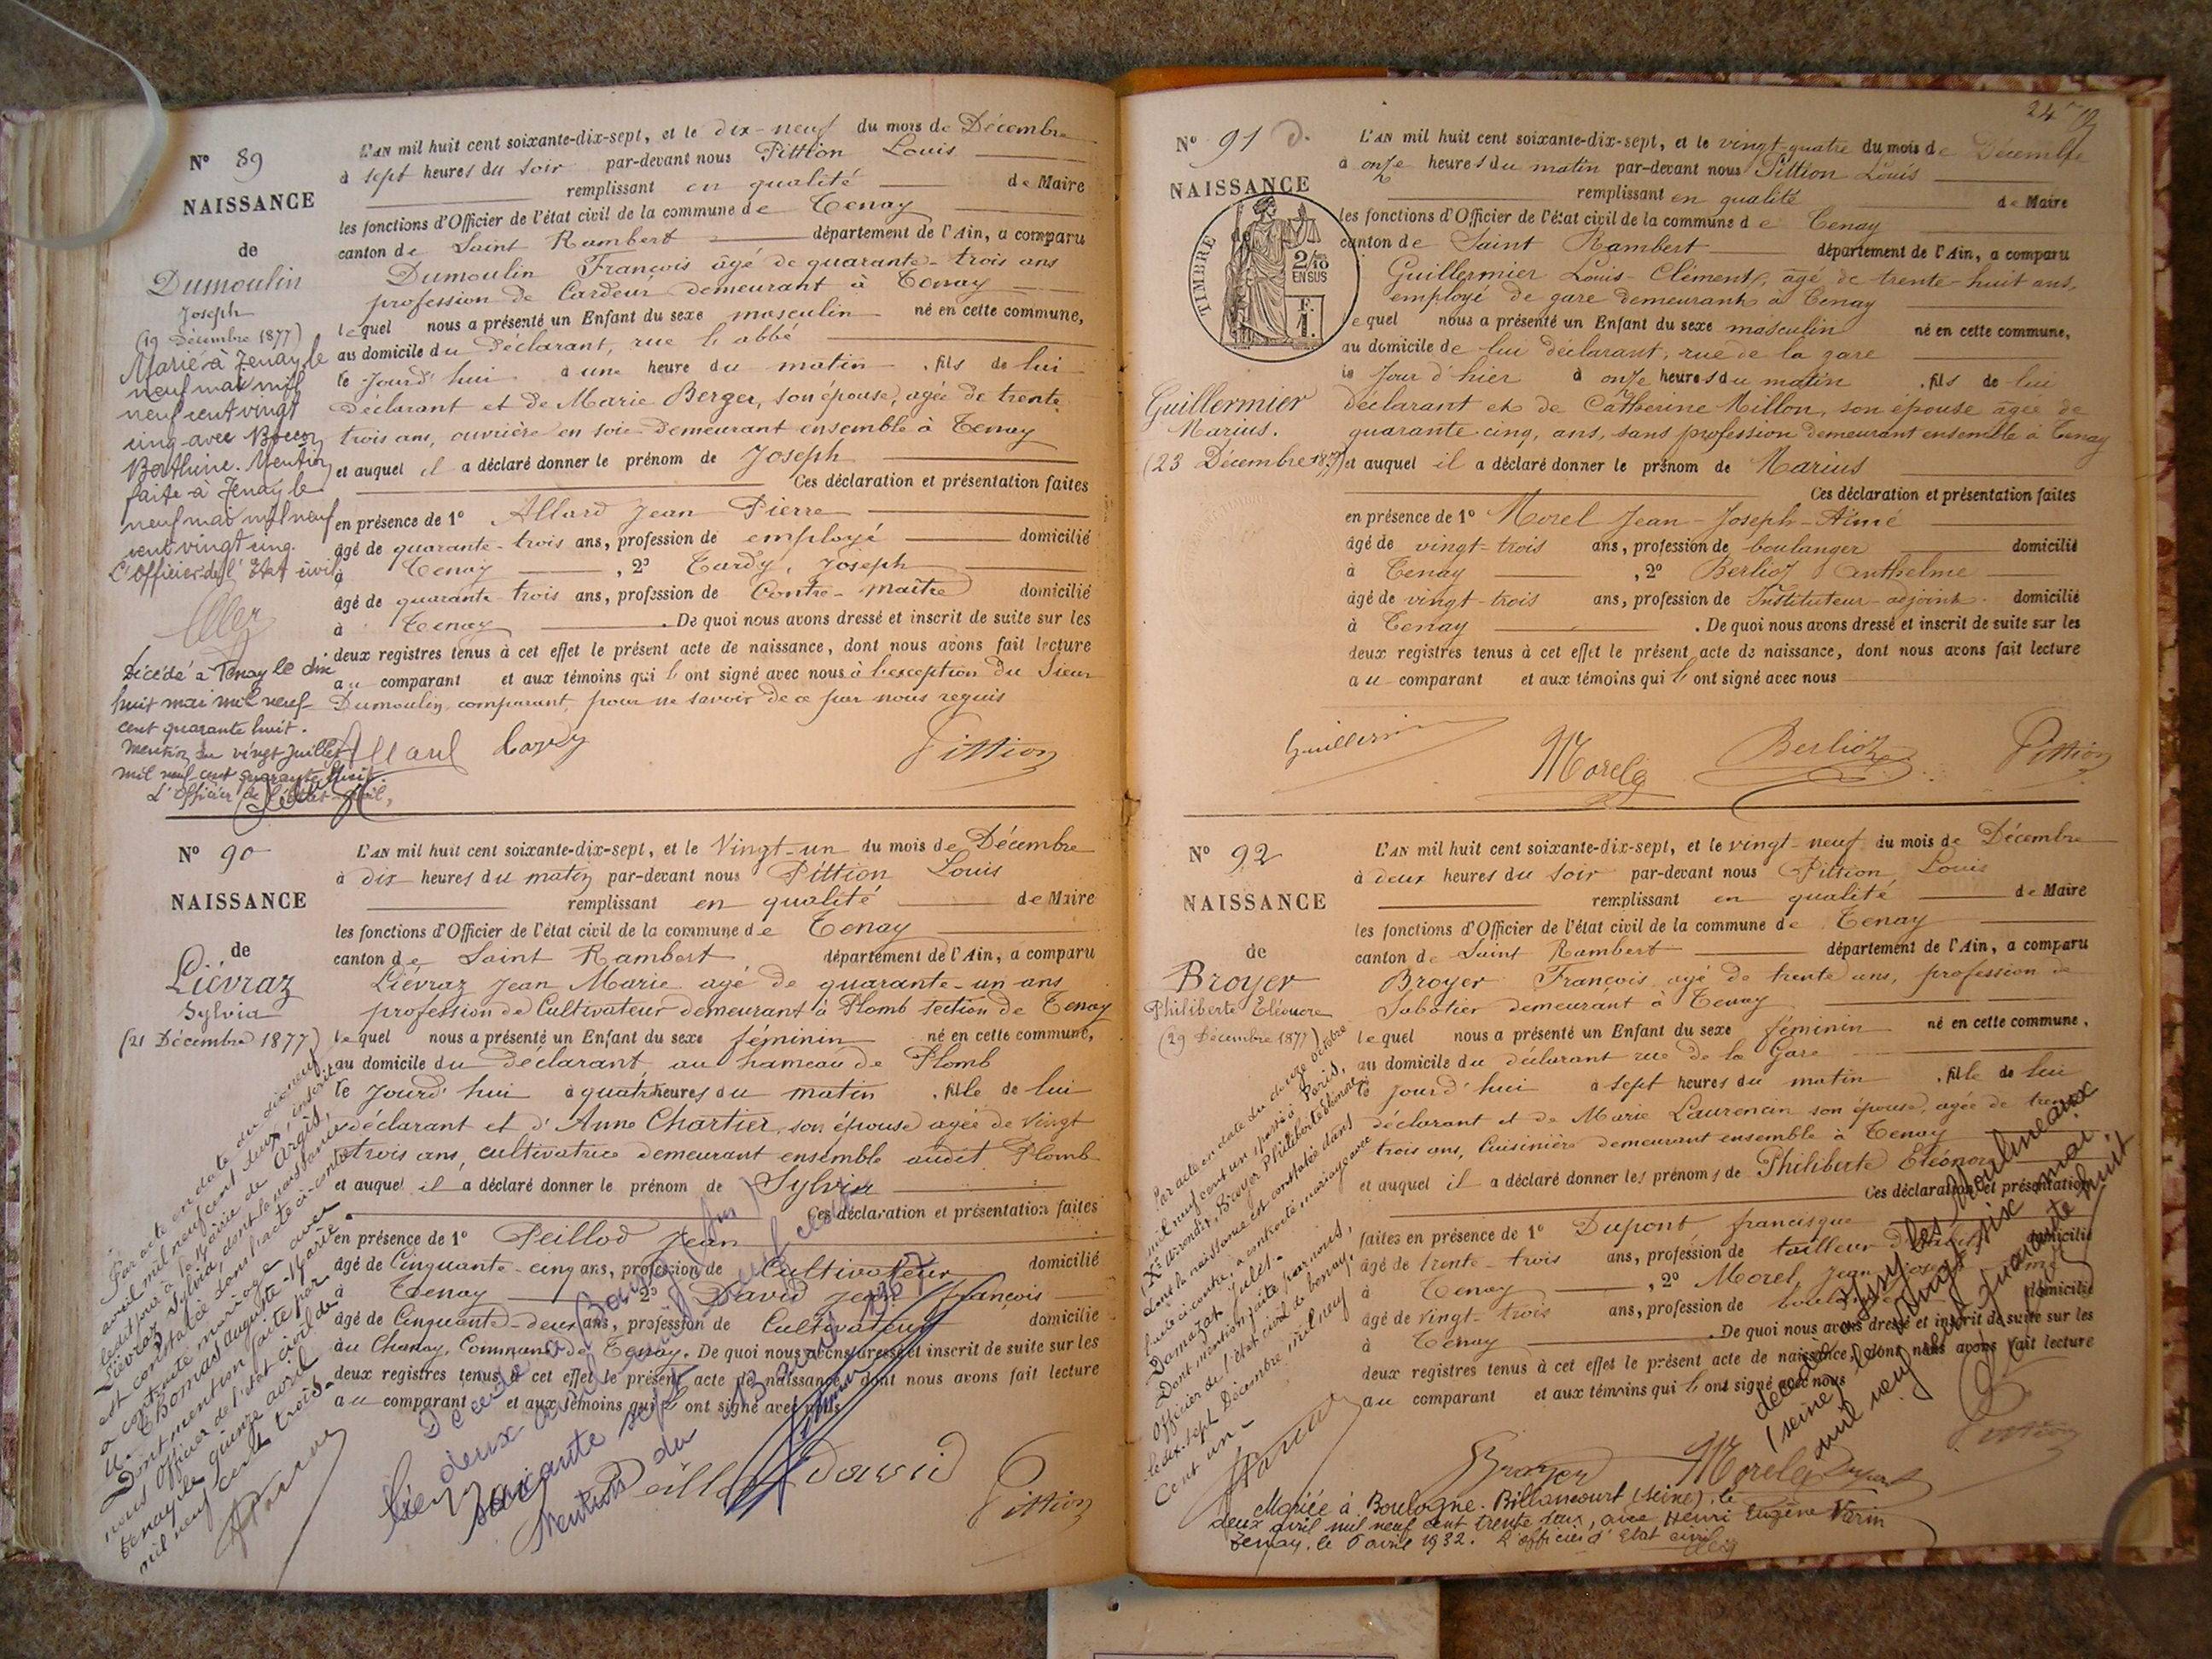 N° 89
NAISSANCE
de
Dumoulin
Joseph
(19 Décembre 1877)
Marié à Tenay le
neuf mai mil
neuf cent vingt
cinq avec
Berthine. Mention
faite à Tenay le
neuf mai mil neuf
cent vingt cinq.
L'Officier de l'Etat civil
Décédé à Tenay le dix
huit mai mil neuf
cent quarante huit.
Mention du vingt Juillet
mil neuf cent quarante huit
L'Officier de l'état-civil,
L'AN mil huit cent soixante-dix-sept, et le dix-neuf du mois de Décembre
à sept heures du soir par-devant nous Pittion Louis
remplissant en qualité de Maire
les fonctions d'Officier de l'état civil de la commune de Tenay
canton de Saint Rambert département de l'Ain, a comparu
Dumoulin François âgé de quarante-trois ans
profession de Cardeur demeurant à Tenay
lequel nous a présenté un Enfant du sexe masculin né en cette commune,
au domicile du déclarant, rue l'abbé
le jourd'hui à une heure du matin, fils de lui
déclarant et de Marie Berger, son épouse, agée de trente
trois ans, ouvrière en soie demeurant ensemble à Tenay
et auquel il a déclaré donner le prénom de Joseph
Ces déclaration et présentation faites
en présence de 1° Allard Jean Pierre
âgé de quarante-trois ans, profession de employé domicilié
à Tenay, 2° Tardy, Joseph
âgé de quarante trois ans, profession de Contre-maître domicilié
à Tenay. De quoi nous avons dressé et inscrit de suite sur les
deux registres tenus à cet effet le présent acte de naissance, dont nous avons fait lecture
au comparant et aux témoins qui l'ont signé avec nous à l'exception du Sieur
Dumoulin, comparant, pour ne savoir de ce par nous requis
Allard Tardy Pittion
N° 90
NAISSANCE
de
Liévraz
Sylvia
(21 Décembre 1877)
Par acte en date du dix neuf
avril mil neuf cent deux, inscrit
ledit jour à la Mairie de Argis,
Liévraz Sylvia, dont la naissance
est constatée dans l'acte ci-contre
a contracté mariage avec
M. Thomas Auguste-Marie
Dont mention faite par
nous Officier de l'état civil de
Tenay le quinze avril
mil neuf cent trois.
L'AN mil huit cent soixante-dix-sept, et le Vingt-un du mois de Décembre
à dix heures du matin par-devant nous Pittion Louis
remplissant en qualité de Maire
les fonctions d'Officier de l'état civil de la commune de Tenay
canton de Saint Rambert département de l'Ain, a comparu
Liévraz Jean Marie agé de quarante-un ans
profession de Cultivateur demeurant à Plomb section de Tenay
lequel nous a présenté un Enfant du sexe féminin né en cette commune,
au domicile du déclarant, au hameau de Plomb
le jourd'hui à quatre heures du matin, fille de lui
déclarant et d'Anne Chartier, son épouse agée de vingt
trois ans, cultivatrice demeurant ensemble audit Plomb
et auquel il a déclaré donner le prénom de Sylvia
Ces déclaration et présentation faites
en présence de 1° Peillod Jean
âgé de Cinquante-cinq ans, profession de Cultivateur domicilié
à Tenay 2° David Jean François
âgé de Cinquante-deux ans, profession de Cultivateur domicilié
au Chanay, Commune de Tenay. De quoi nous avons dressé et inscrit de suite sur les
deux registres tenus à cet effet le présent acte de naissance, dont nous avons fait lecture
au comparant et aux témoins qui l'ont signé avec nous
Décédée à
deux avril mil neuf cent
soixante sept
Mention du 13 avril 1967
Peillod David Pittion
24
N° 91
NAISSANCE
de
TIMBRE
2/10
EN SUS
F.
1.
Guillermier
Marius.
(23 Décembre 1877)
L'AN mil huit cent soixante-dix-sept, et le vingt-quatre du mois de Décembre
à onze heures du matin par-devant nous Pittion Louis
remplissant en qualité de Maire
les fonctions d'Officier de l'état civil de la commune de Tenay
canton de Saint Rambert département de l'Ain, a comparu
Guillermier Louis-Clément, âgé de trente-huit ans,
employé de gare demeurant à Tenay
lequel nous a présenté un Enfant du sexe masculin né en cette commune,
au domicile de lui déclarant, rue de la gare
le jour d'hier à onze heures du matin, fils de lui
déclarant et de Catherine Millon, son épouse âgée de
quarante cinq, ans, sans profession demeurant ensemble à Tenay
et auquel il a déclaré donner le prénom de Marius
Ces déclaration et présentation faites
en présence de 1° Morel Jean-Joseph-Aimé
âgé de vingt-trois ans, profession de boulanger domicilié
à Tenay, 2° Berlioz Anthelme
âgé de vingt-trois ans, profession de Instituteur-adjoint domicilié
à Tenay. De quoi nous avons dressé et inscrit de suite sur les
deux registres tenus à cet effet le présent acte de naissance, dont nous avons fait lecture
au comparant et aux témoins qui l'ont signé avec nous
Guillermier Morel Berlioz Pittion
N° 92
NAISSANCE
de
Broyer
Philiberte Eléonore
(29 Décembre 1877)
Par acte en date du douze octobre
mil neuf cent un passé à Paris,
(X° Arrondis.) Broyer Philiberte Eléonore
dont la naissance est constatée dans
l'acte ci-contre, a contracté mariage avec
Damazot Jules.
Dont mention faite par nous,
Officier de l'état civil de Tenay,
le dix-sept Décembre mil neuf
cent un
L'AN mil huit cent soixante-dix-sept, et le vingt-neuf du mois de Décembre
à deux heures du soir par-devant nous Pittion Louis
remplissant en qualité de Maire
les fonctions d'Officier de l'état civil de la commune de Tenay
canton de Saint Rambert département de l'Ain, a comparu
Broyer François agé de trente ans, profession de
Sabotier demeurant à Tenay
lequel nous a présenté un Enfant du sexe féminin né en cette commune,
au domicile du déclarant rue de la Gare
le jourd'hui à sept heures du matin, fille de lui
déclarant et de Marie Laurencin son épouse, agée de trente
trois ans, Cuisinière demeurant ensemble à Tenay
et auquel il a déclaré donner les prénoms de Philiberte Eléonore
Ces déclaration et présentation
faites en présence de 1° Dupont francisque
âgé de trente-trois ans, profession de tailleur d'habits domicilié
à Tenay, 2° Morel, Jean Joseph Aimé
âgé de vingt-trois ans, profession de boulanger domicilié
à Tenay. De quoi nous avons dressé et inscrit de suite sur les
deux registres tenus à cet effet le présent acte de naissance, dont nous avons fait lecture
au comparant et aux témoins qui l'ont signé avec nous
décédée à Issy les Moulineaux
(seine) le vingt six mai
mil neuf cent quarante huit
Broyer Morel Dupont Pittion
Mariée à Boulogne-Billancourt (seine), le
deux avril mil neuf cent trente deux, avec Henri Eugène Varin
Tenay, le 6 avril 1932. L'officier d'Etat civil